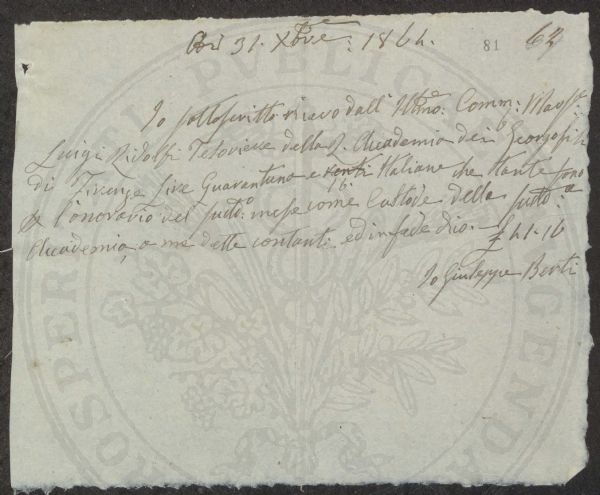 Adì 31. Xbre: 1864. 81 63
Io sottoscritto ricevo dall' Illmo: Comm: March:
Luigi Ridolfi Tesoriere della R. Accademia dei Georgofili
di Firenze lire Quarantuna e centi 16 Italiane che tante sono
l'onorario del sudd:o mese come Custode della sudd:a
Accademia, a me dette contanti ed in fede dico. £ 41.16
Io Giuseppe Berti
PROSPERITATI PUBLICAE AUGENDAE